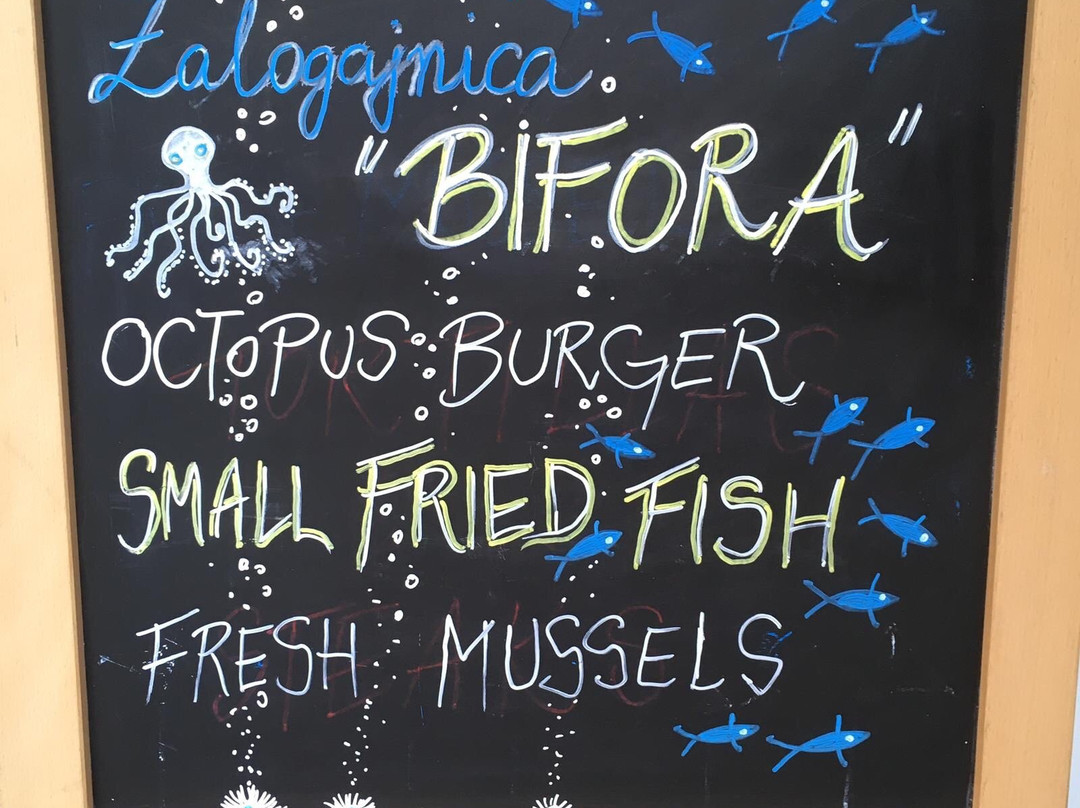 Zalogajnica
"BIFORA"
OCTOPUS BURGER
SMALL FRIED FISH
FRESH MUSSELS